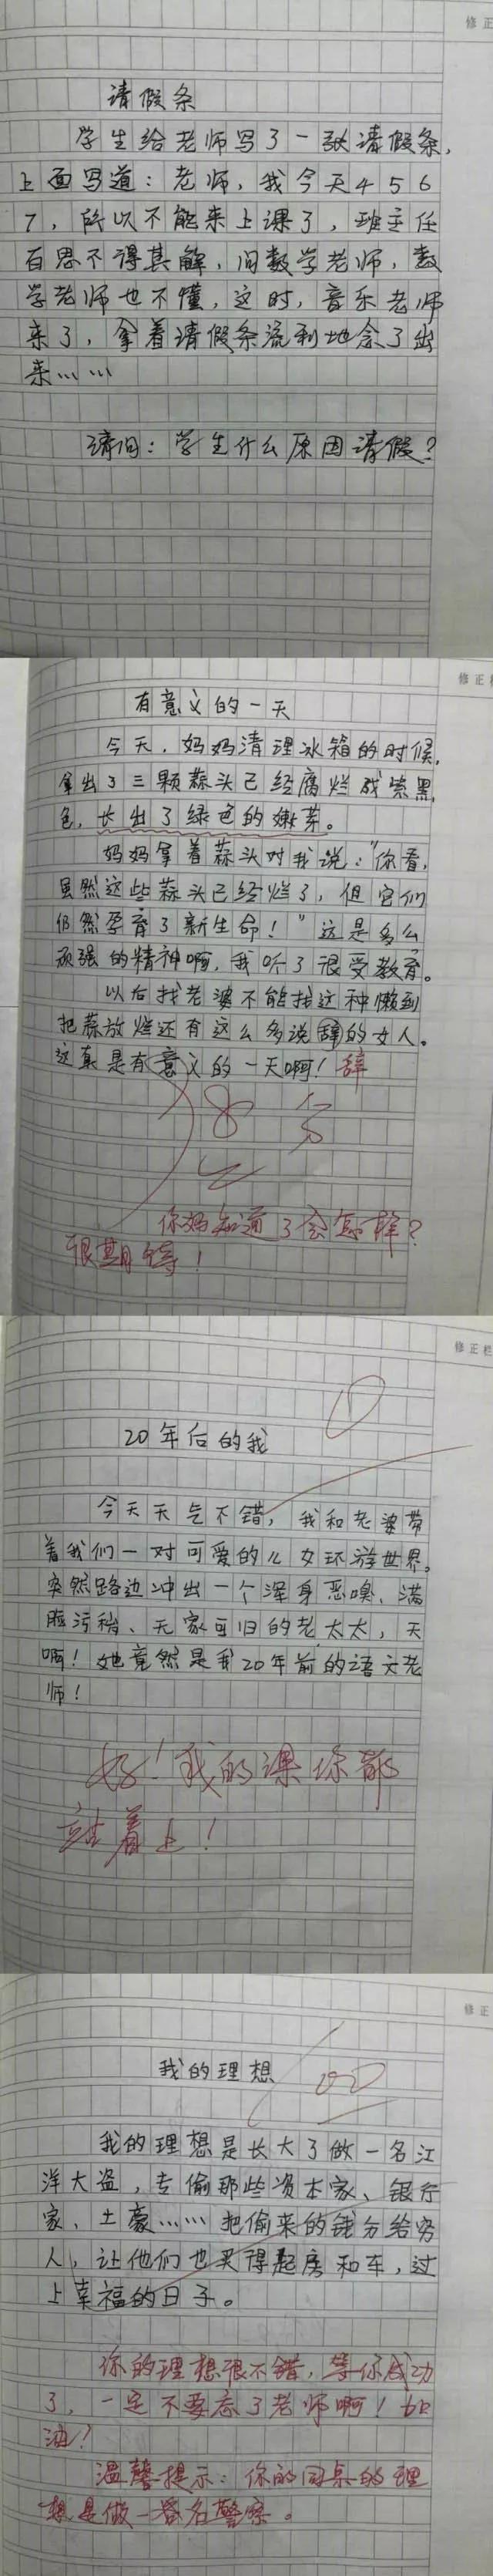 修正
请假条
学生给老师写了一张请假条,
上面写道:老师,我今天4 5 6
7,所以不能来上课了,班主任
百思不得其解,问数学老师,数
学老师也不懂,这时,音乐老师
来了,拿着请假条流利地念了出
来……
请问:学生什么原因请假?
修正
有意义的一天
今天,妈妈清理冰箱的时候,
拿出了三颗蒜头已经腐烂成紫黑
色,长出了绿色的嫩芽。
妈妈拿着蒜头对我说:"你看,
虽然这些蒜头已经烂了,但它们
仍然孕育了新生命!"这是多么
顽强的精神啊,我听了很受教育。
以后找老婆不能找这种懒到
把蒜放烂还有这么多说辞的女人。
这真是有意义的一天啊!辞
你妈知道了会怎样?
很期待!
修正栏
20年后的我
今天天气不错,我和老婆带
着我们一对可爱的儿女环游世界。
突然路边冲出一个浑身恶嗅、满
脸污秽、无家可归的老太太,天
啊!她竟然是我20年前的语文老
师!
好!我的课你都
站着上!
修正
我的理想
100
我的理想是长大了做一名江
洋大盗,专偷那些资本家、银行
家、土豪……把偷来的钱分给穷
人,让他们也买得起房和车,过
上幸福的日子。
你的理想很不错,等你成功
了,一定不要忘了老师啊!加
油!
温馨提示:你的同桌的理
想是做一名警察。